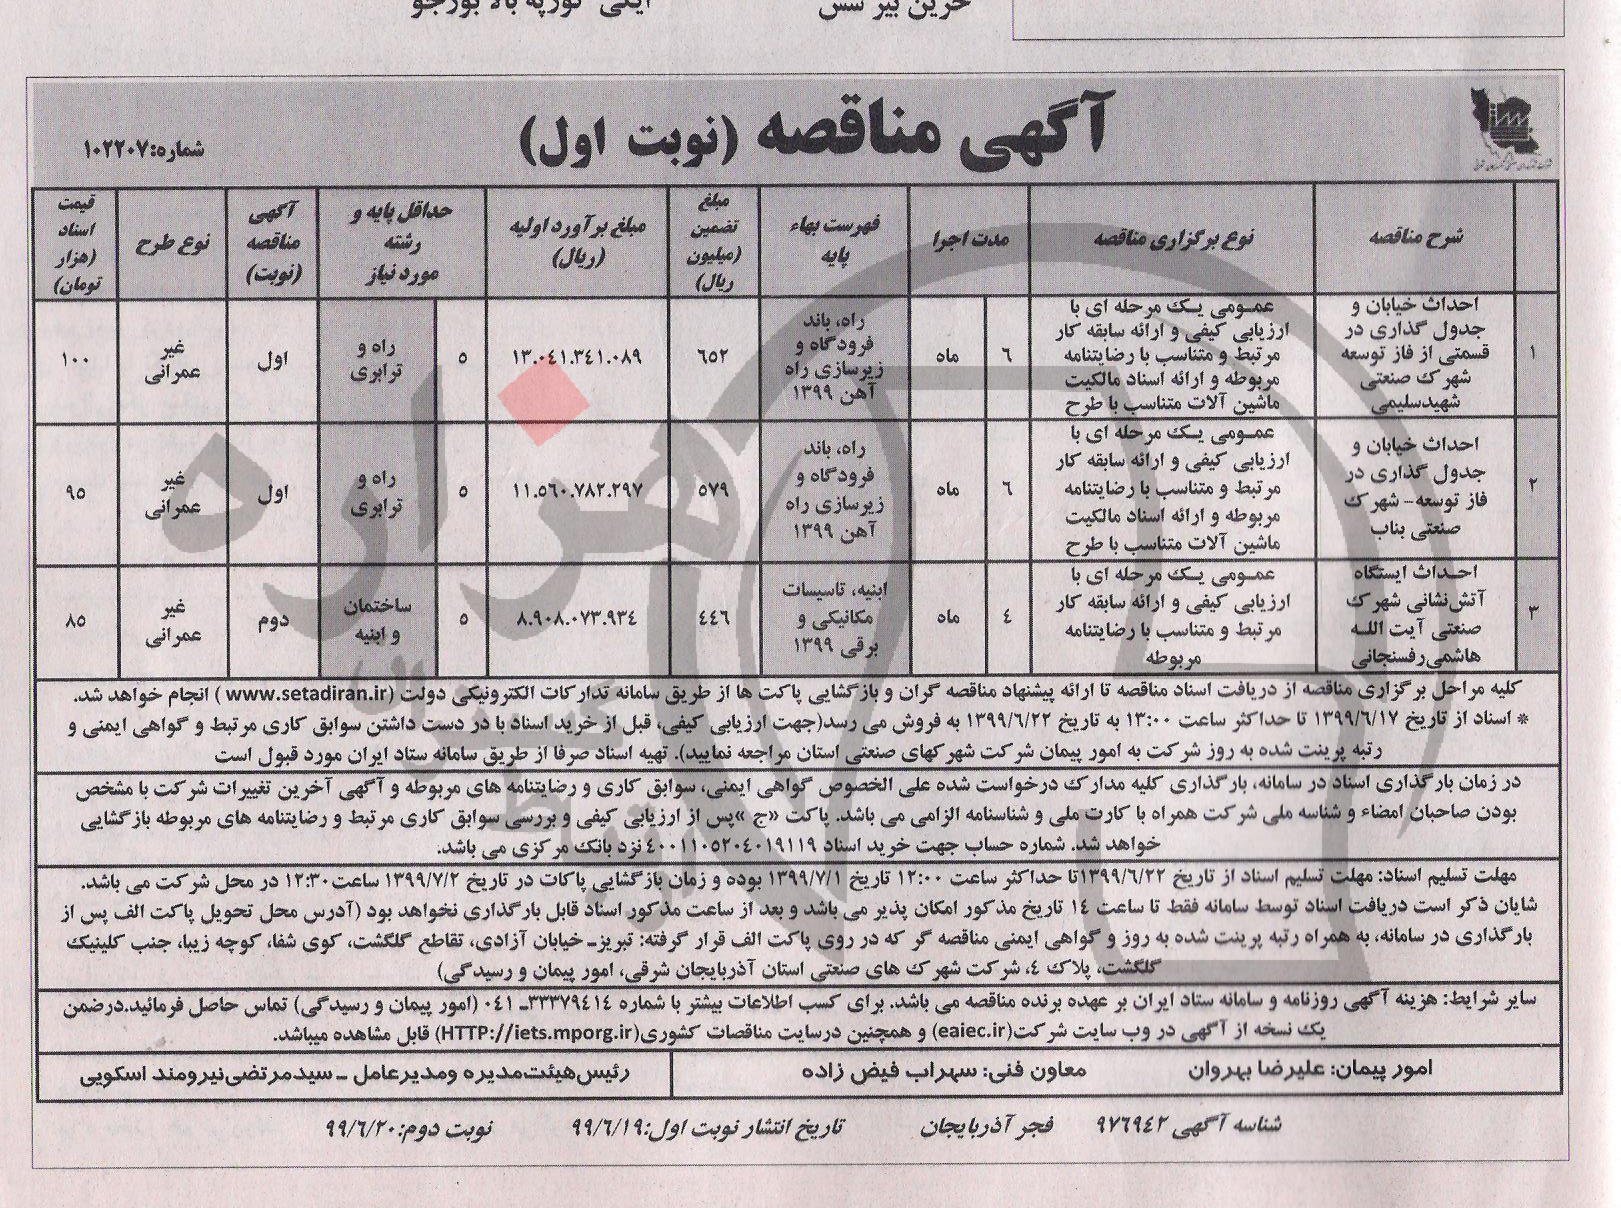 آگهی مناقصه (نوبت اول)
شماره:۱۰۲۲۰۷
شرح مناقصه | نوع برگزاری مناقصه | مدت اجرا | فهرست بهاء پایه | مبلغ تضمین (میلیون ریال) | مبلغ برآورد اولیه (ریال) | حداقل پایه و رشته مورد نیاز | آگهی مناقصه (نوبت) | نوع طرح | قیمت اسناد (هزار تومان)
۱ | احداث خیابان و جدول گذاری در قسمتی از فاز توسعه شهرک صنعتی شهیدسلیمی | عمومی یک مرحله ای با ارزیابی کیفی و ارائه سابقه کار مرتبط و متناسب با رضایتنامه مربوطه و ارائه اسناد مالکیت ماشین آلات متناسب با طرح | ٦ | ماه | راه، باند فرودگاه و زیرسازی راه آهن ۱۳۹۹ | ٦٥٢ | ۱۳.۰٤۱.۳٤۱.۰۸۹ | ٥ | راه و ترابری | اول | غیر عمرانی | ۱۰۰
۲ | احداث خیابان و جدول گذاری در فاز توسعه- شهرک صنعتی بناب | عمومی یک مرحله ای با ارزیابی کیفی و ارائه سابقه کار مرتبط و متناسب با رضایتنامه مربوطه و ارائه اسناد مالکیت ماشین آلات متناسب با طرح | ٦ | ماه | راه، باند فرودگاه و زیرسازی راه آهن ۱۳۹۹ | ٥۷۹ | ۱۱.٥٦۰.۷۸۲.۲۹۷ | ٥ | راه و ترابری | اول | غیر عمرانی | ۹٥
۳ | احداث ایستگاه آتش‌نشانی شهرک صنعتی آیت الله هاشمی‌رفسنجانی | عمومی یک مرحله ای با ارزیابی کیفی و ارائه سابقه کار مرتبط و متناسب با رضایتنامه مربوطه | ٤ | ماه | ابنیه، تاسیسات مکانیکی و برقی ۱۳۹۹ | ٤٤٦ | ۸.۹۰۸.۰۷۳.۹۳٤ | ٥ | ساختمان و ابنیه | دوم | غیر عمرانی | ۸٥
کلیه مراحل برگزاری مناقصه از دریافت اسناد مناقصه تا ارائه پیشنهاد مناقصه گران و بازگشایی پاکت ها از طریق سامانه تدارکات الکترونیکی دولت (www.setadiran.ir) انجام خواهد شد.
* اسناد از تاریخ ۱۳۹۹/٦/۱۷ تا حداکثر ساعت ۱۳:۰۰ به تاریخ ۱۳۹۹/٦/۲۲ به فروش می رسد(جهت ارزیابی کیفی، قبل از خرید اسناد با در دست داشتن سوابق کاری مرتبط و گواهی ایمنی و
رتبه پرینت شده به روز شرکت به امور پیمان شرکت شهرکهای صنعتی استان مراجعه نمایید). تهیه اسناد صرفا از طریق سامانه ستاد ایران مورد قبول است
در زمان بارگذاری اسناد در سامانه، بارگذاری کلیه مدارک درخواست شده علی الخصوص گواهی ایمنی، سوابق کاری و رضایتنامه های مربوطه و آگهی آخرین تغییرات شرکت با مشخص
بودن صاحبان امضاء و شناسه ملی شرکت همراه با کارت ملی و شناسنامه الزامی می باشد. پاکت «ج »پس از ارزیابی کیفی و بررسی سوابق کاری مرتبط و رضایتنامه های مربوطه بازگشایی
خواهد شد. شماره حساب جهت خرید اسناد ٤۰۰۱۱۰٥۲۰٤۰۱۹۱۱۹ نزد بانک مرکزی می باشد.
مهلت تسلیم اسناد: مهلت تسلیم اسناد از تاریخ ۱۳۹۹/٦/۲۲تا حداکثر ساعت ۱۲:۰۰ تاریخ ۱۳۹۹/۷/۱ بوده و زمان بازگشایی پاکات در تاریخ ۱۳۹۹/۷/۲ ساعت۱۲:۳۰ در محل شرکت می باشد.
شایان ذکر است دریافت اسناد توسط سامانه فقط تا ساعت ۱٤ تاریخ مذکور امکان پذیر می باشد و بعد از ساعت مذکور اسناد قابل بارگذاری نخواهد بود (آدرس محل تحویل پاکت الف پس از
بارگذاری در سامانه، به همراه رتبه پرینت شده به روز و گواهی ایمنی مناقصه گر که در روی پاکت الف قرار گرفته: تبریز- خیابان آزادی، تقاطع گلگشت، کوی شفا، کوچه زیبا، جنب کلینیک
گلگشت، پلاک ٤، شرکت شهرک های صنعتی استان آذربایجان شرقی، امور پیمان و رسیدگی)
سایر شرایط: هزینه آگهی روزنامه و سامانه ستاد ایران بر عهده برنده مناقصه می باشد. برای کسب اطلاعات بیشتر با شماره ۳۳۳۷۹٤۱٤-۰٤۱ (امور پیمان و رسیدگی) تماس حاصل فرمائید.درضمن
یک نسخه از آگهی در وب سایت شرکت(eaiec.ir) و همچنین درسایت مناقصات کشوری(HTTP://iets.mporg.ir) قابل مشاهده میباشد.
امور پیمان: علیرضا بهروان معاون فنی: سهراب فیض زاده رئیس‌هیئت‌مدیره ومدیرعامل - سیدمرتضی‌نیرومند اسکویی
شناسه آگهی ۹۷٦۹٤۲ فجر آذربایجان تاریخ انتشار نوبت اول:۹۹/٦/۱۹ نوبت دوم:۹۹/٦/۲۰